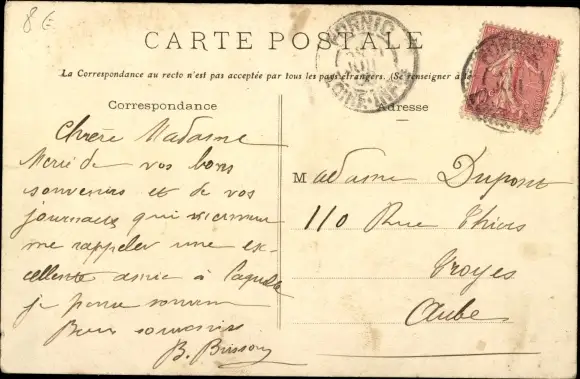 8 €
CARTE POSTALE
PORNIC
LOIRE-INF
La Correspondance au recto n'est pas acceptée par tous les pays étrangers. (Se renseigner à
Correspondance
Adresse
Chère Madame
Merci de vos bons
souvenirs et de vos
journaux qui viennent
me rappeler une ex-
cellente amie à laquelle
je pense souvent
Bons souvenirs
B. Brisson
Madame Dupont
110 Rue Thiers
Troyes
Aube